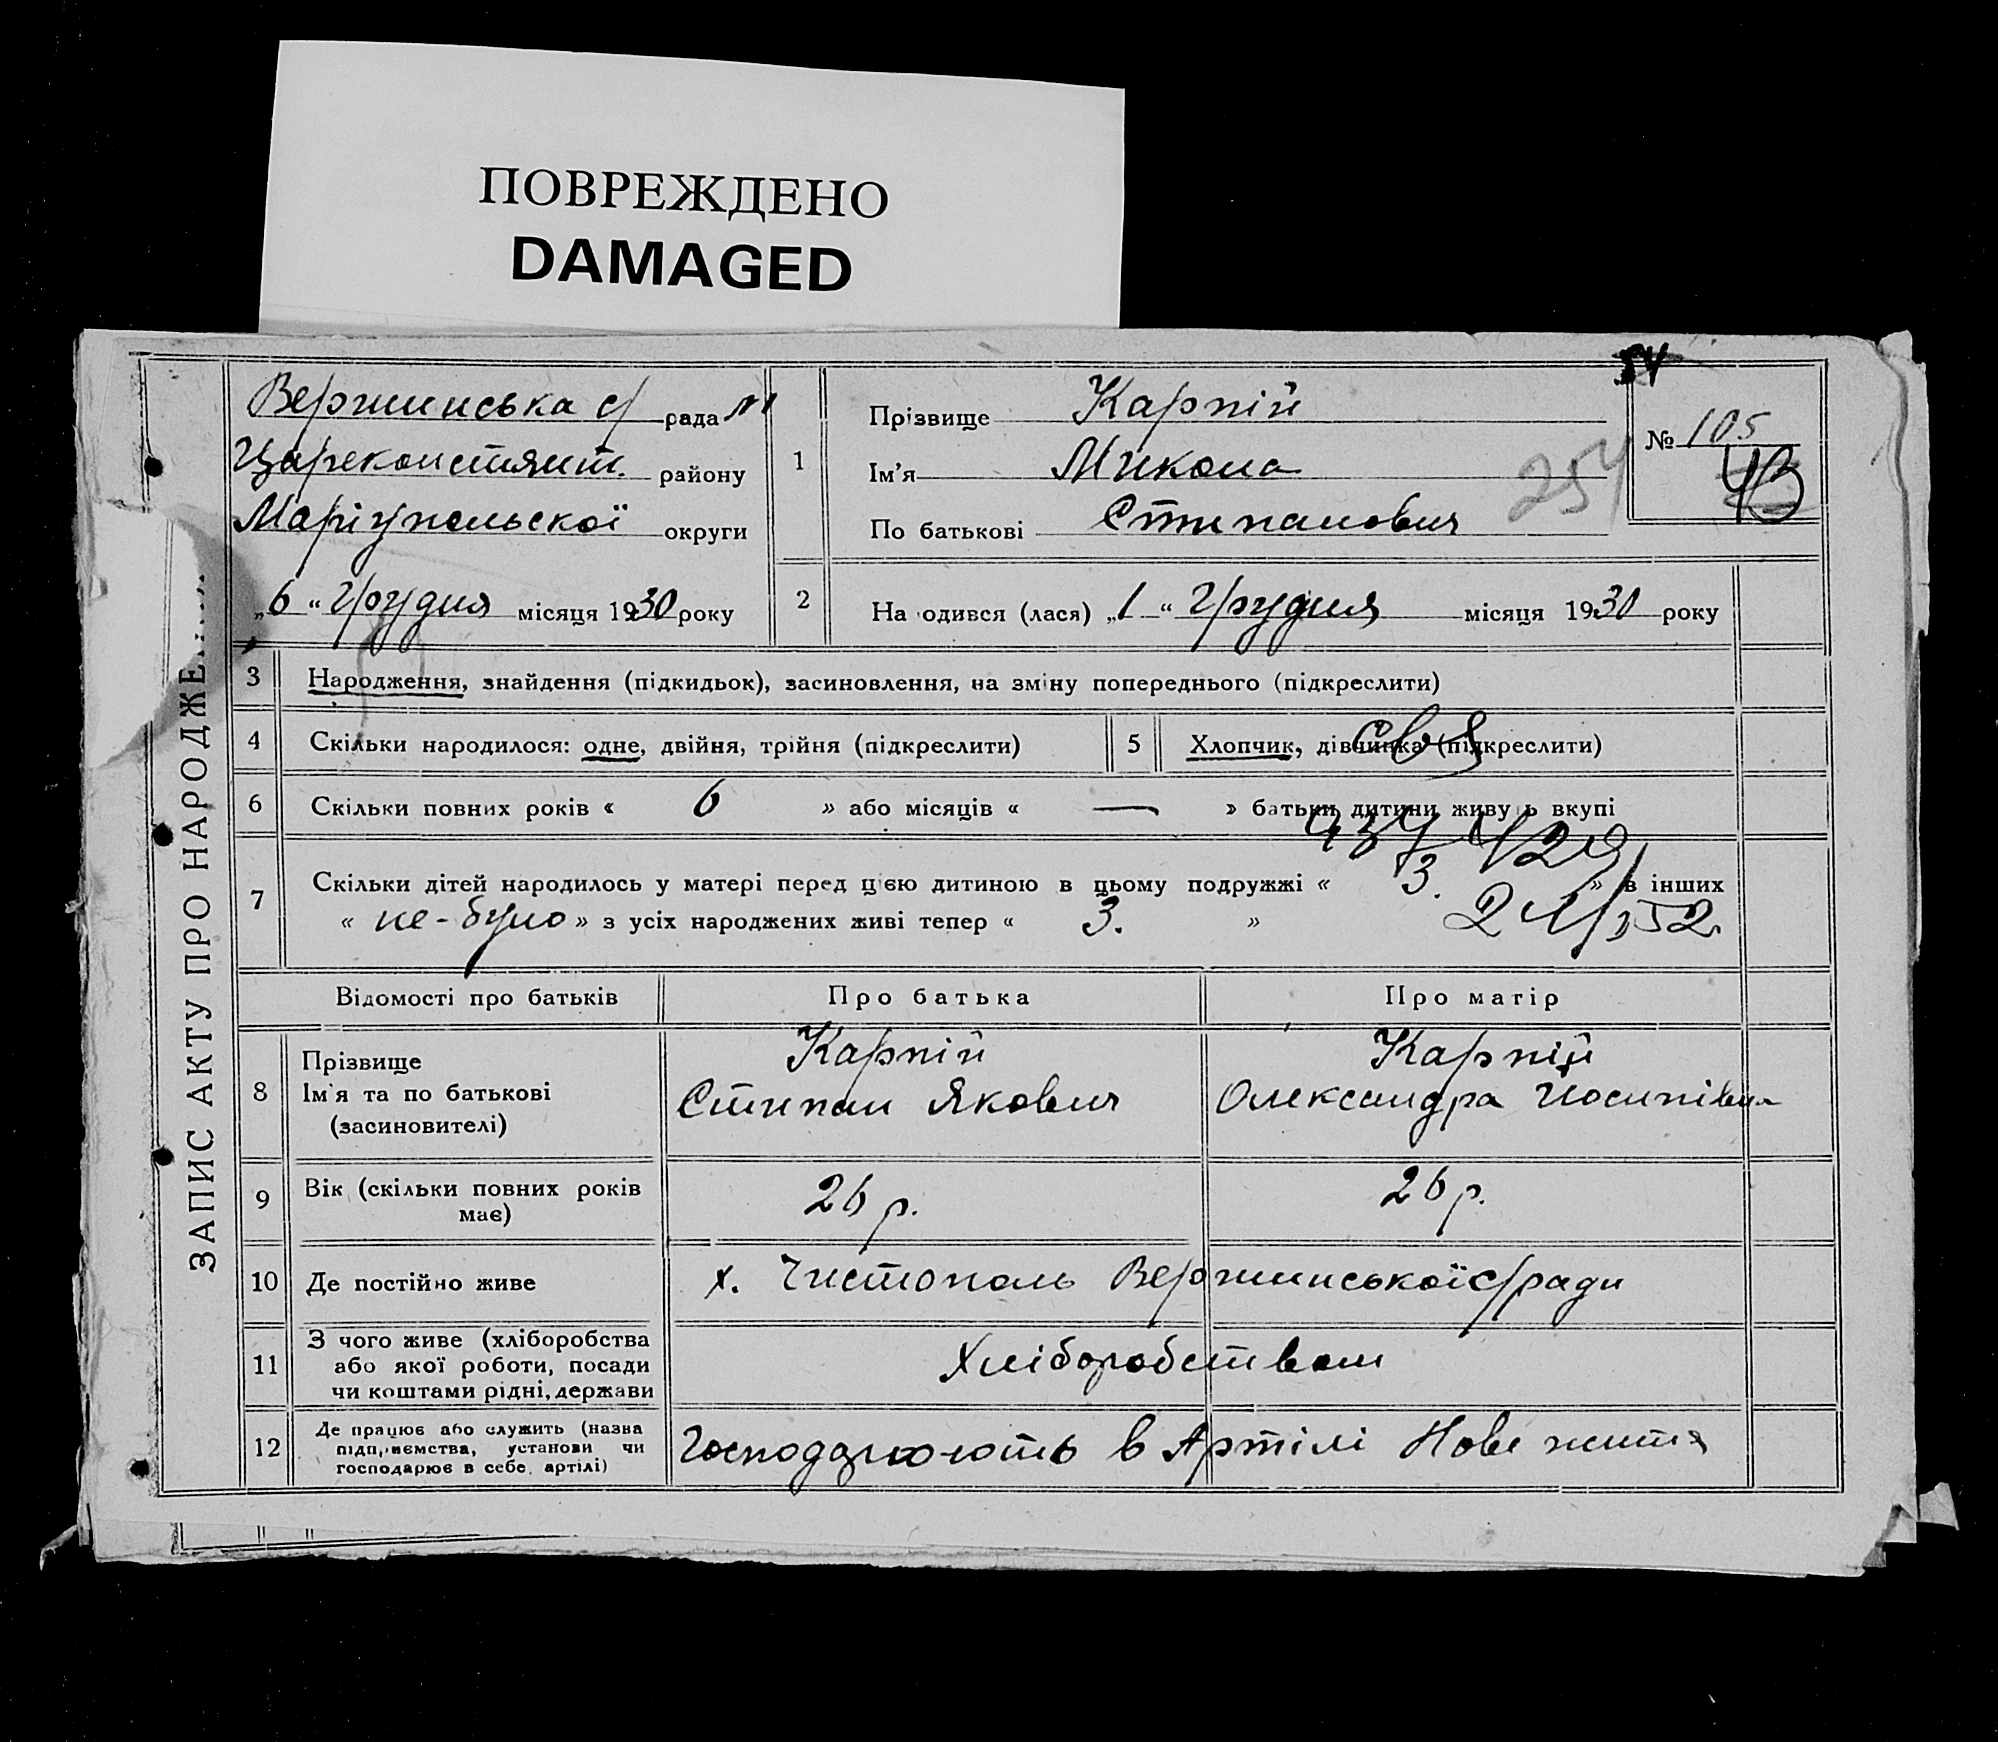 ПОВРЕЖДЕНО
DAMAGED
54
Вержинська с/ рада
Цареконстянт. району
Маріупольскої округи
„6“ Грудня місяця 1930 року
1
Прізвище Карпій
Ім'я Микола
По батькові Степанович
№ 105
43
254
2
На одився (лася) „1“ Грудня місяця 1930 року
ЗАПИС АКТУ ПРО НАРОДЖЕННЯ
3 Народження, знайдення (підкидьок), засиновлення, на зміну попереднього (підкреслити)
4 Скільки народилося: одне, двійня, трійня (підкреслити)
5 Хлопчик, дівчинка (підкреслити)
6 Скільки повних років « 6 » або місяців « — » батьки дитини живуть вкупі
7 Скільки дітей народилось у матері перед цією дитиною в цьому подружжі « 3. » в інших
« не-було » з усіх народжених живі тепер « 3. »
Відомості про батьків
Про батька
Про матір
8 Прізвище
Ім'я та по батькові
(засиновителі)
Карпій
Степан Якович
Карпій
Олександра Йосипівна
9 Вік (скільки повних років
має)
26 р.
26 р.
10 Де постійно живе
х. Чистополь Вержинської с/ради
11 З чого живе (хліборобства
або якої роботи, посади
чи коштами рідні, держави
Хліборобством
12 Де працює або служить (назва
підприємства, установи чи
господарює в себе, артілі)
Господарюють в Артілі Нове життя